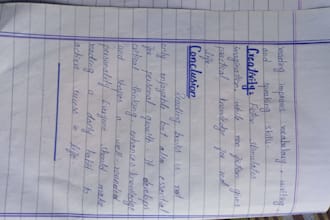 reading improves vocabulary, writing
and speaking skills.
Creativity: Fiction stimulates
imagination, while non fiction gives
practical knowledge for real
life.
Conclusion
Reading books is not
only enjoyable but also essential
for personal growth. It develops
critical thinking, enhances knowledge
and shapes a well-rounded
personality. Everyone should make
reading a daily habit to
achieve success in life.